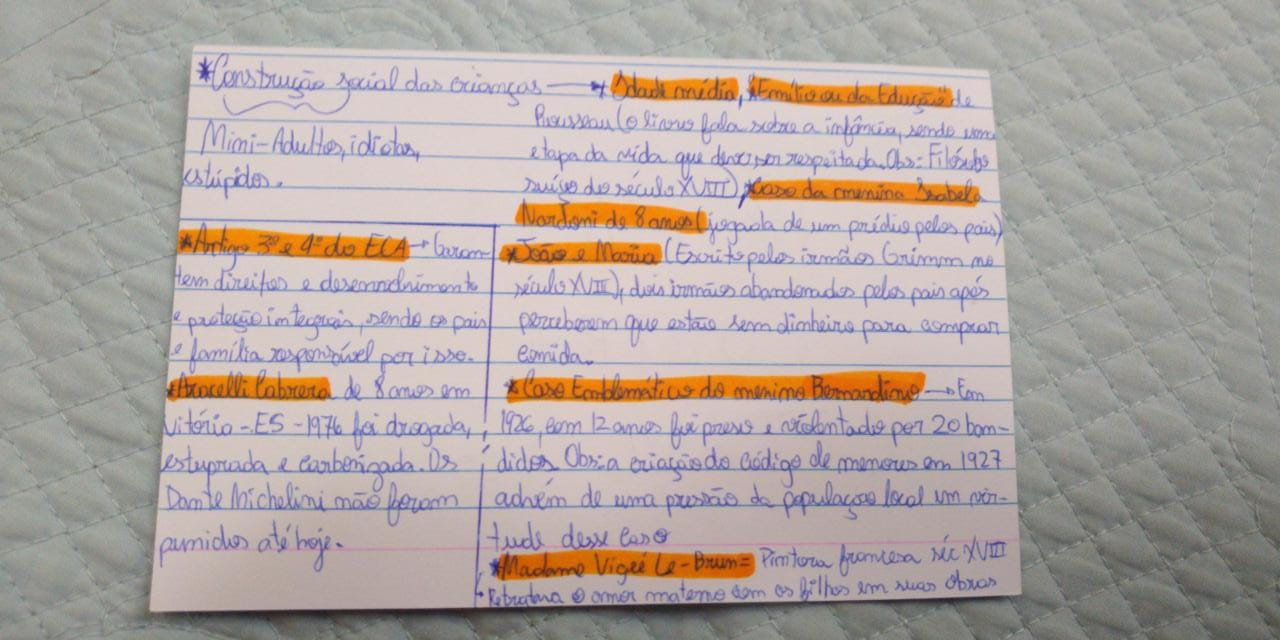 *Construção social das crianças → *Idade média, "Emílio ou da Edução" de
Rousseau (o livro fala sobre a infância, sendo uma
etapa da vida que deve ser respeitada. Obs= Filósofo
suíço do século XVIII) *Caso da menina Isabela
Nardoni de 8 anos (jogada de um prédio pelos pais)
Mini-Adultos, idiotas,
estúpidos.
*Artigo 3º e 4º do ECA → Garan-
tem direitos e desenvolvimento
e proteção integrais, sendo os pais
e família responsável por isso.
*Aracelli Cabrera de 8 anos em
Vitória - ES - 1976 foi drogada,
estuprada e carbonizada. Os
Dante Michelini não foram
punidos até hoje.
*João e Maria (Escrito pelos irmãos Grimm no
século XVII), dois irmãos abandonados pelos pais após
perceberem que estão sem dinheiro para comprar
comida.
*Caso Emblemático do menino Bernardino → Em
1926, com 12 anos foi preso e violentado por 20 ban-
didos. Obs: a criação do Código de menores em 1927
advém de uma pressão da população local em vir-
tude desse caso
*Madame Vigeé Le-Brun = Pintora francesa séc XVIII
Retratava o amor materno com os filhos em suas obras